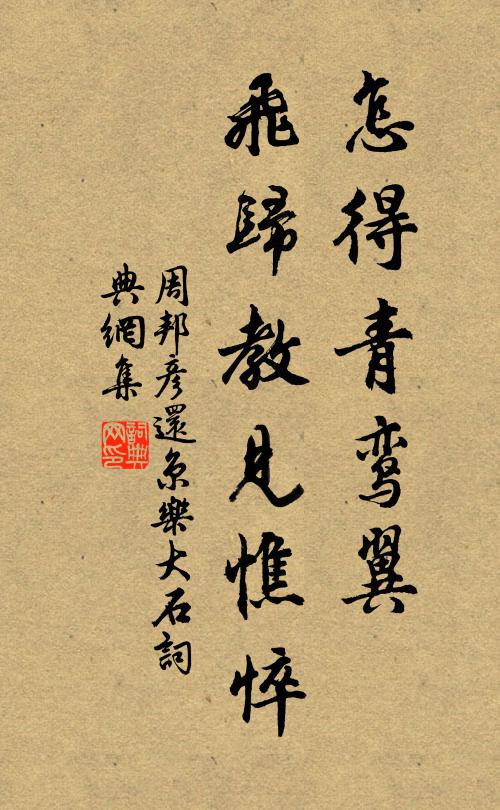 怎得青鸾翼
飛歸教見憔悴
周邦彦還京樂大石詞
典網集
詞典網印